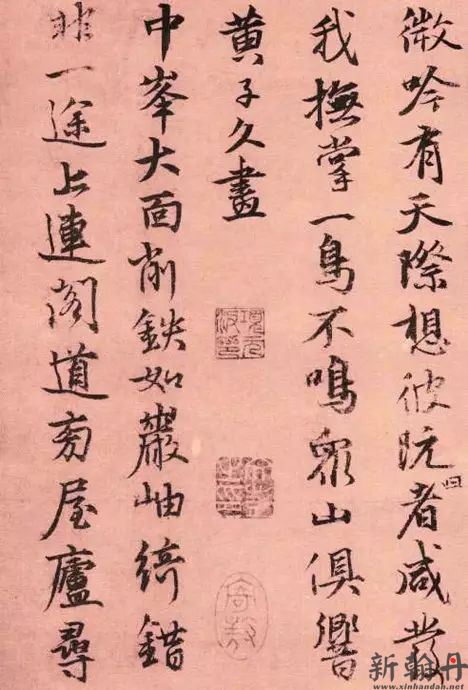 微吟有天際想彼阮者咸
我撫掌一鳥不鳴衆山俱響
黄子久畫
中峯大面削鉄如巖岫綺錯
非一途上連閣道旁屋廬尋
新翰丹
www.xinhandan.net